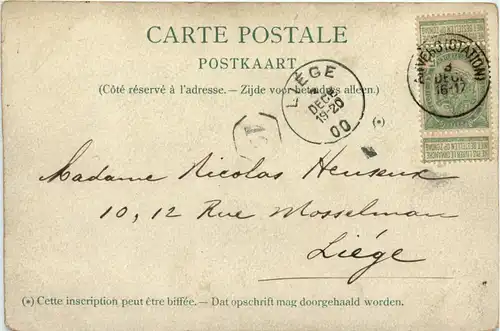 CARTE POSTALE
POSTKAART
(Côté réservé à l'adresse. — Zijde voor het adres alleen.)
LIÉGE
DÉCE
19-20
00
ANVERS (STATION)
DECE
16-17
NIET BESTELLEN OP ZONDAG
(*)
Madame Nicolas Heuseux
10, 12 Rue Mosselman
Liége
(*) Cette inscription peut être biffée. — Dat opschrift mag doorgehaald worden.